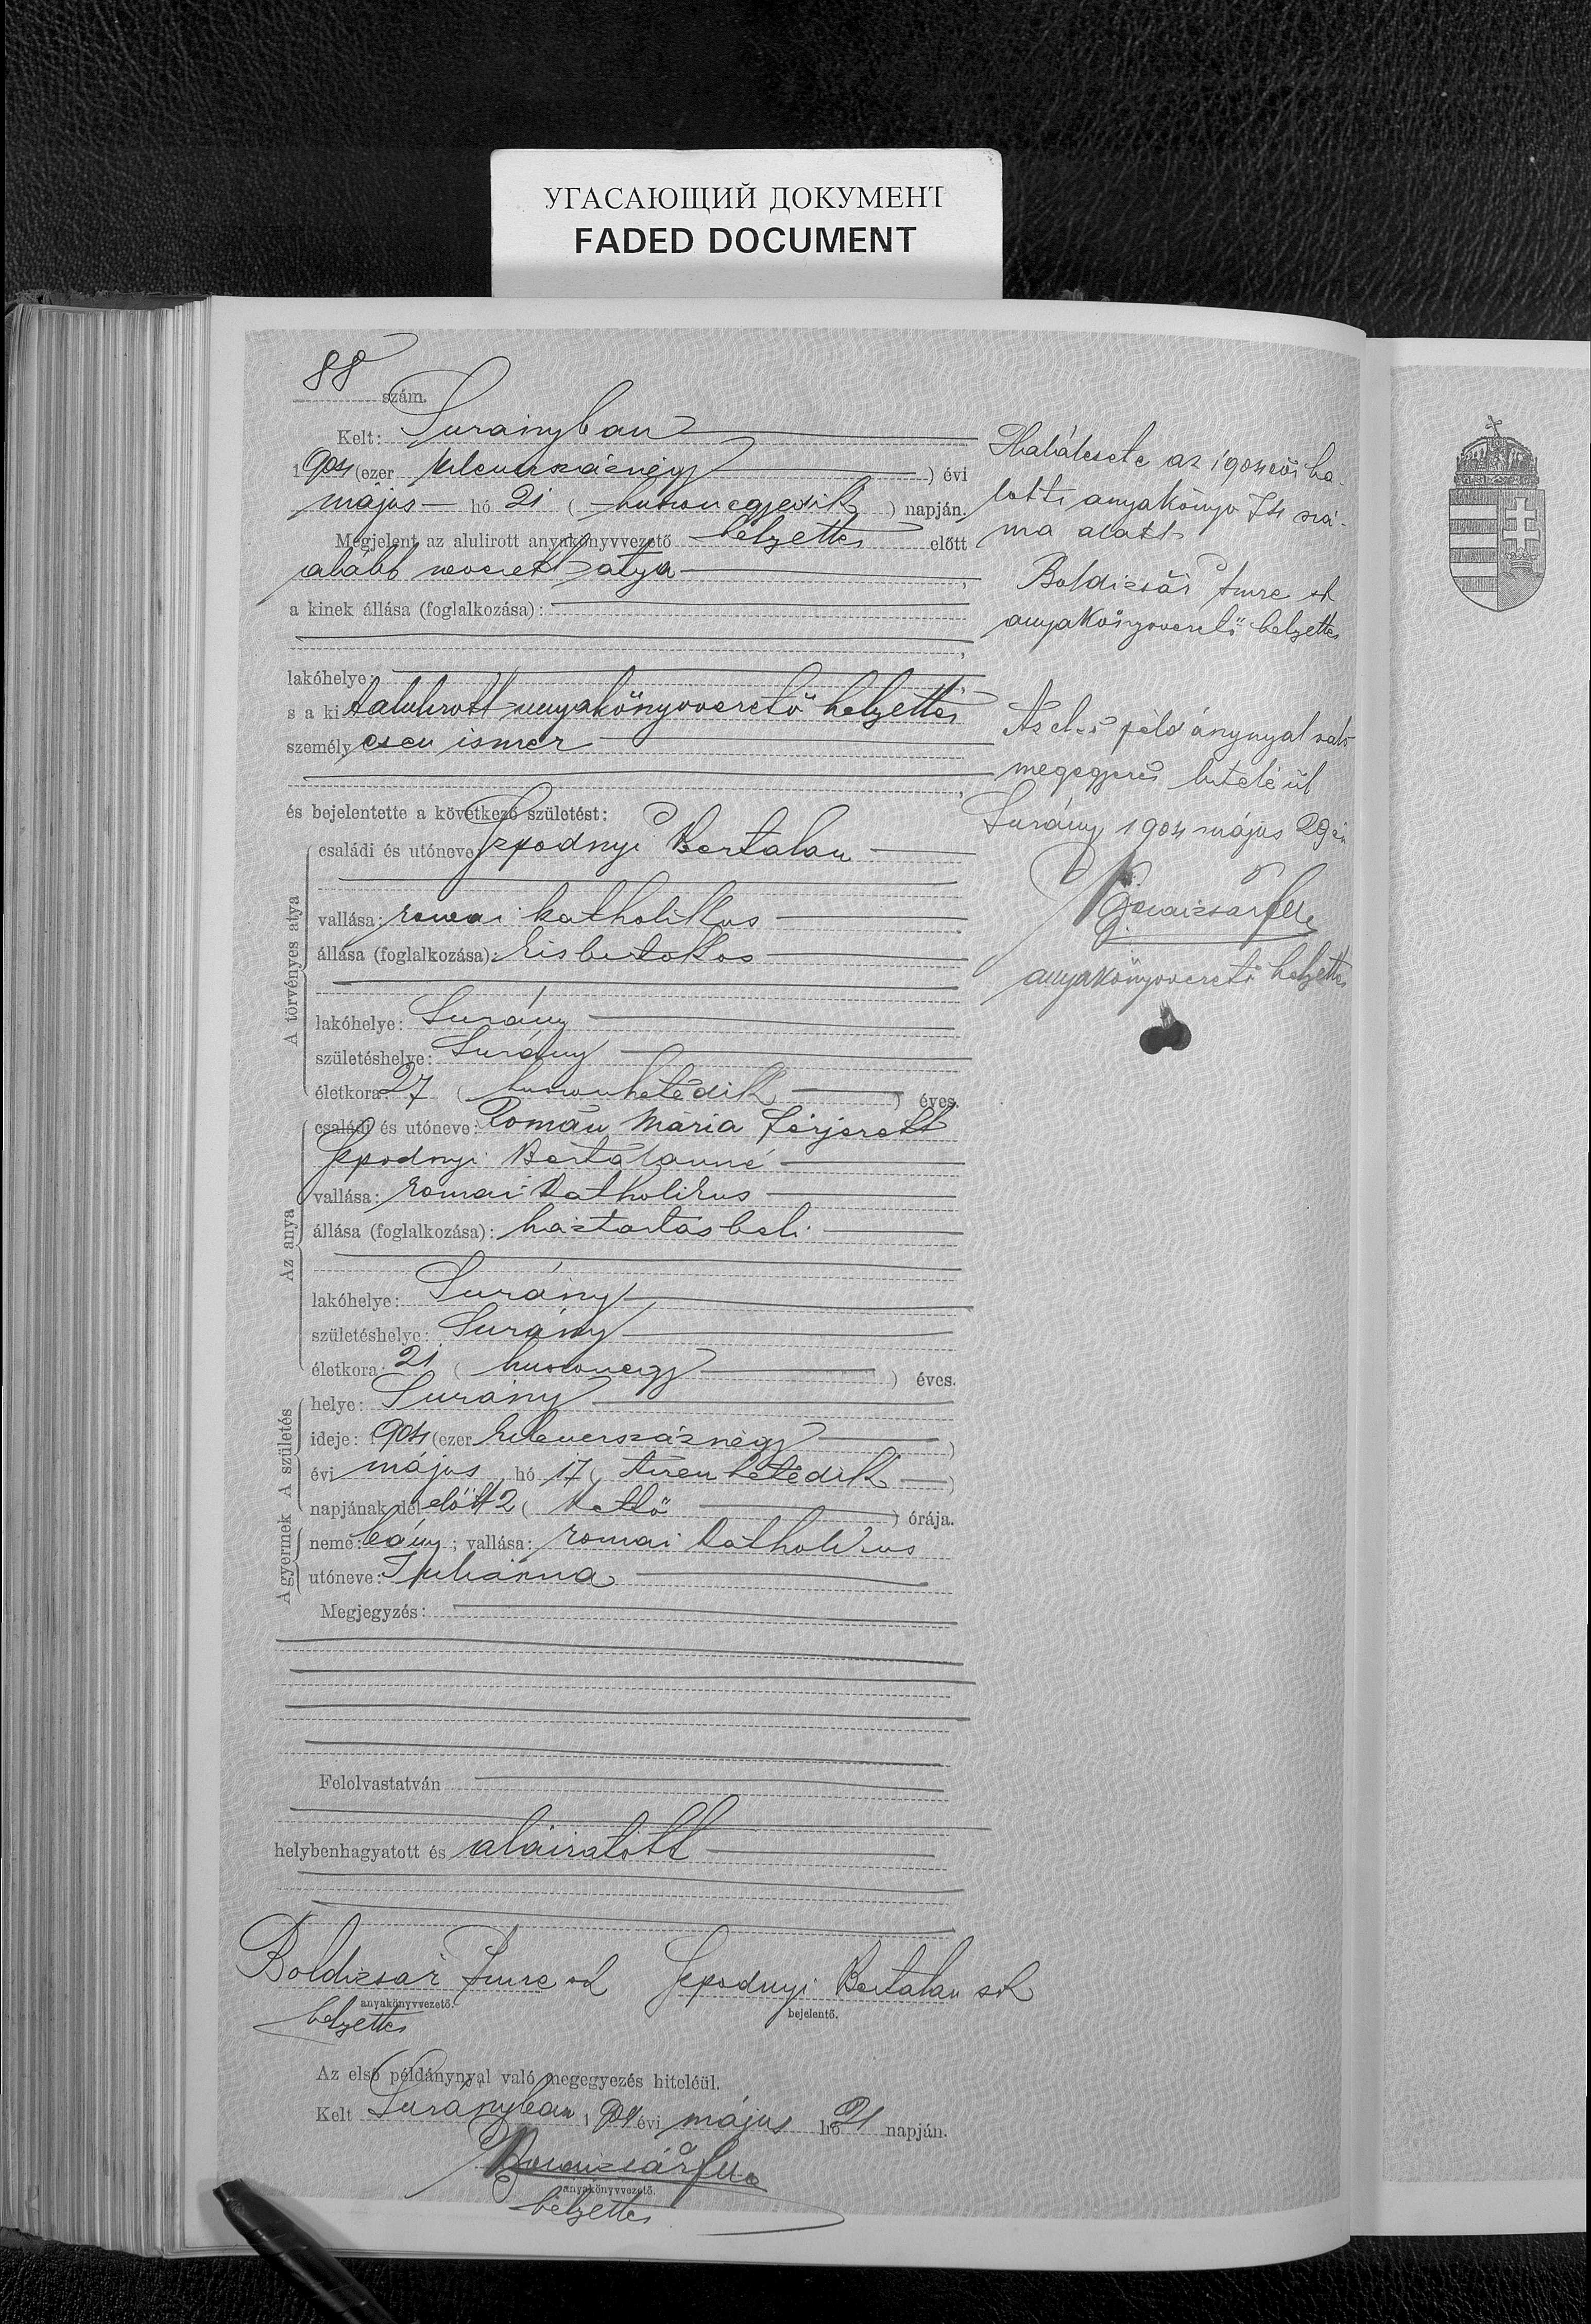 УГАСАЮЩИЙ ДОКУМЕНТ
FADED DOCUMENT
88 szám.
Kelt: Surányban
1904 (ezer kilencszáznégy) évi
május hó 21 (huszonegyedik) napján.
Megjelent az alulirott anyakönyvvezető helyettes előtt
alább nevezett atya,
a kinek állása (foglalkozása):
lakóhelye:
s a kit alulirott anyakönyvvezető helyettes
személyesen ismer
és bejelentette a következő születést:
A törvényes atya
családi és utóneve: Szpodnyi Bertalan
vallása: romai katholikus
állása (foglalkozása): kisbirtokos
lakóhelye: Surány
születéshelye: Surány
életkora: 27 (huszonhetedik) éves.
Az anya
családi és utóneve: Román Mária férjezett
Szpodnyi Bertalanné
vallása: romai katholikus
állása (foglalkozása): háztartásbeli
lakóhelye: Surány
születéshelye: Surány
életkora: 21 (huszonegy) éves.
A születés
helye: Surány
ideje: 1904 (ezer kilencszáznégy)
évi május hó 17 (tizenhetedik)
napjának dél előtt 2 (kettő) órája.
A gyermek
neme: leány; vallása: romai katholikus
utóneve: Julianna
Megjegyzés:
Felolvastatván
helybenhagyatott és aláiratott
Boldizsár Imre sk Szpodnyi Bertalan sk
anyakönyvvezető. bejelentő.
helyettes
Az első példánynyal való megegyezés hiteléül.
Kelt Surányban 1904 évi május hó 21 napján.
Boldizsár Imre
anyakönyvvezető.
helyettes
Halálesete az 1904 évi ha-
lotti anyakönyv 74 szá-
ma alatt
Boldizsár Imre sk
anyakönyvvezető helyettes
Az első példánynyal való
megegyezés hiteléül
Surány 1904 május 29én
Boldizsár Imre
anyakönyvvezető helyettes